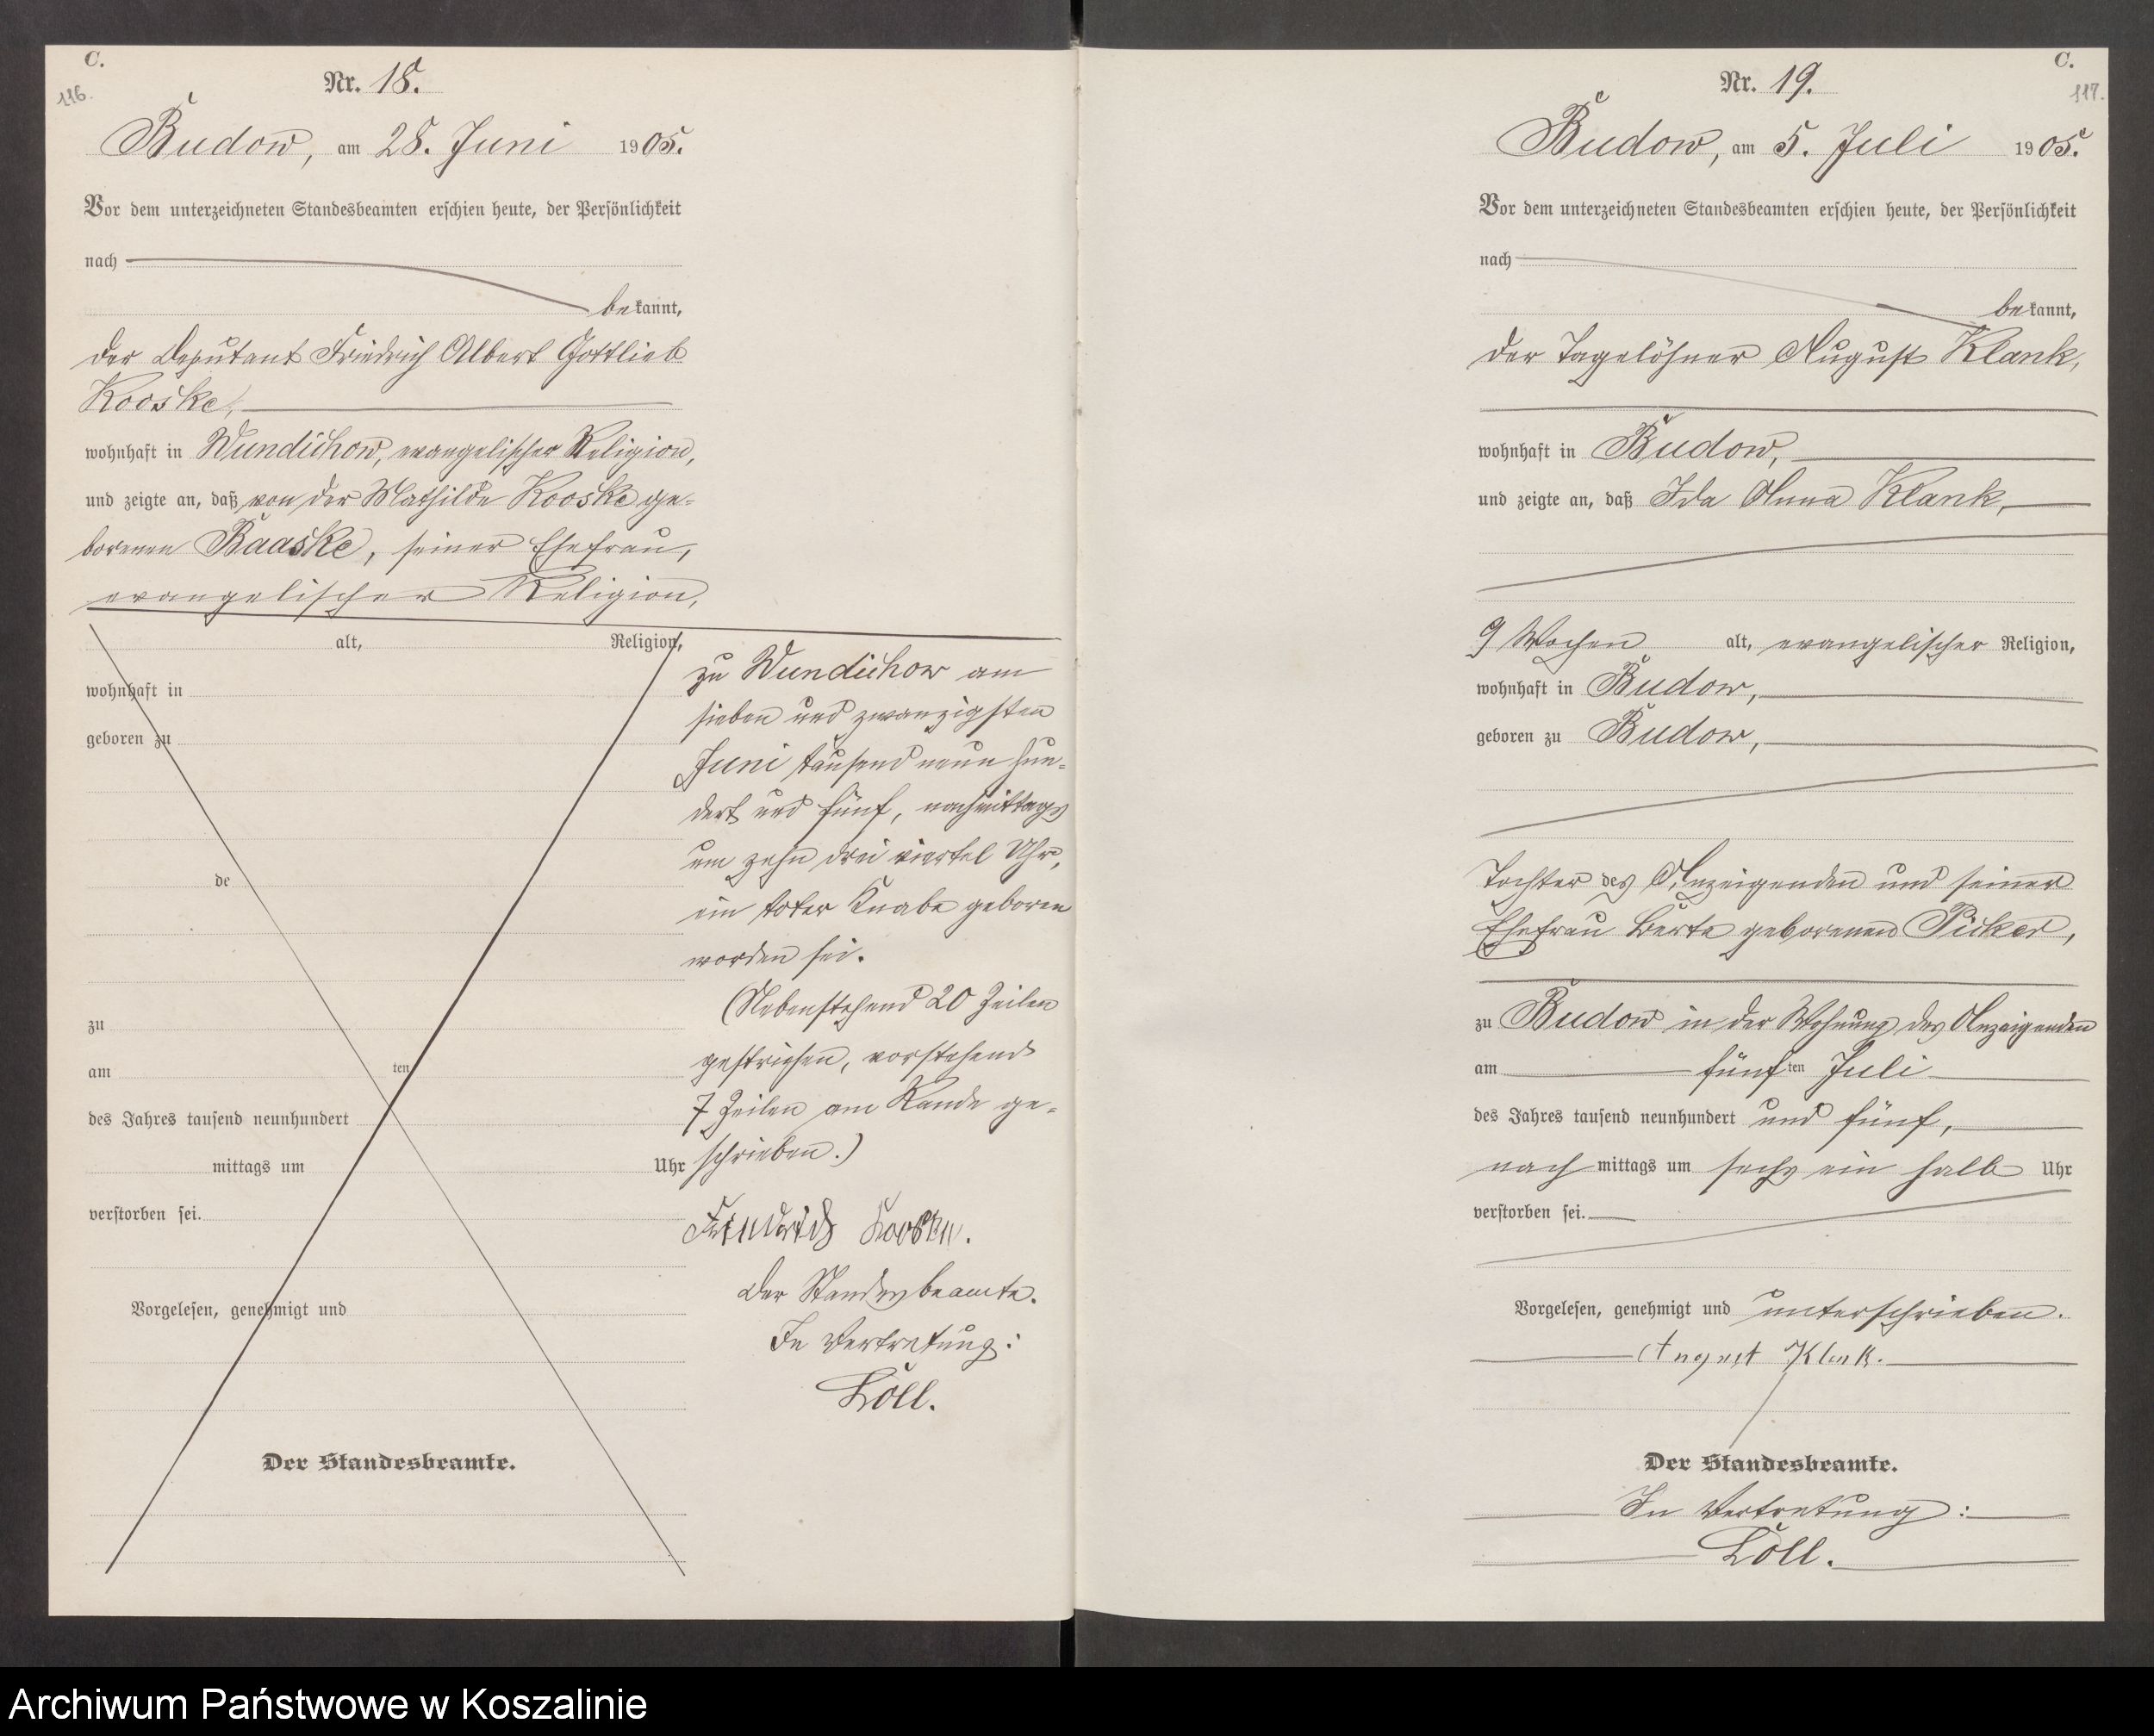 C.
116.
Nr. 18.
Budow, am 28. Juni 1905.
Vor dem unterzeichneten Standesbeamten erschien heute, der Persönlichkeit
nach
bekannt,
der Deputant Friedrich Albert Gottlieb
Kooske,
wohnhaft in Wundichow, evangelischer Religion,
und zeigte an, daß von der Mathilde Kooske ge-
borenen Baaske, seiner Ehefrau,
evangelischer Religion,
alt, Religion,
wohnhaft in
geboren zu
de
zu
am ten
des Jahres tausend neunhundert
mittags um Uhr
verstorben sei.
Vorgelesen, genehmigt und
Der Standesbeamte.
zu Wundichow am
sieben und zwanzigsten
Juni tausend neun hun-
dert und fünf, nachmittags
um zehn drei viertel Uhr,
ein toter Knabe geboren
worden sei.
(Nebenstehend 20 Zeilen
gestrichen, vorstehend
7 Zeilen am Rande ge-
schrieben.)
Friedrich Kooske.
Der Standesbeamte.
In Vertretung:
Löll.
C.
117.
Nr. 19.
Budow, am 5. Juli 1905.
Vor dem unterzeichneten Standesbeamten erschien heute, der Persönlichkeit
nach
bekannt,
der Tagelöhner August Klank,
wohnhaft in Budow,
und zeigte an, daß Ida Anna Klank,
9 Wochen alt, evangelischer Religion,
wohnhaft in Budow,
geboren zu Budow,
Tochter des Anzeigenden und seiner
Ehefrau Berta geborenen Picker,
zu Budow in der Wohnung des Anzeigenden
am fünften Juli
des Jahres tausend neunhundert und fünf,
nach mittags um sechs ein halb Uhr
verstorben sei.
Vorgelesen, genehmigt und unterschrieben.
August Klank.
Der Standesbeamte.
In Vertretung:
Löll.
Archiwum Państwowe w Koszalinie